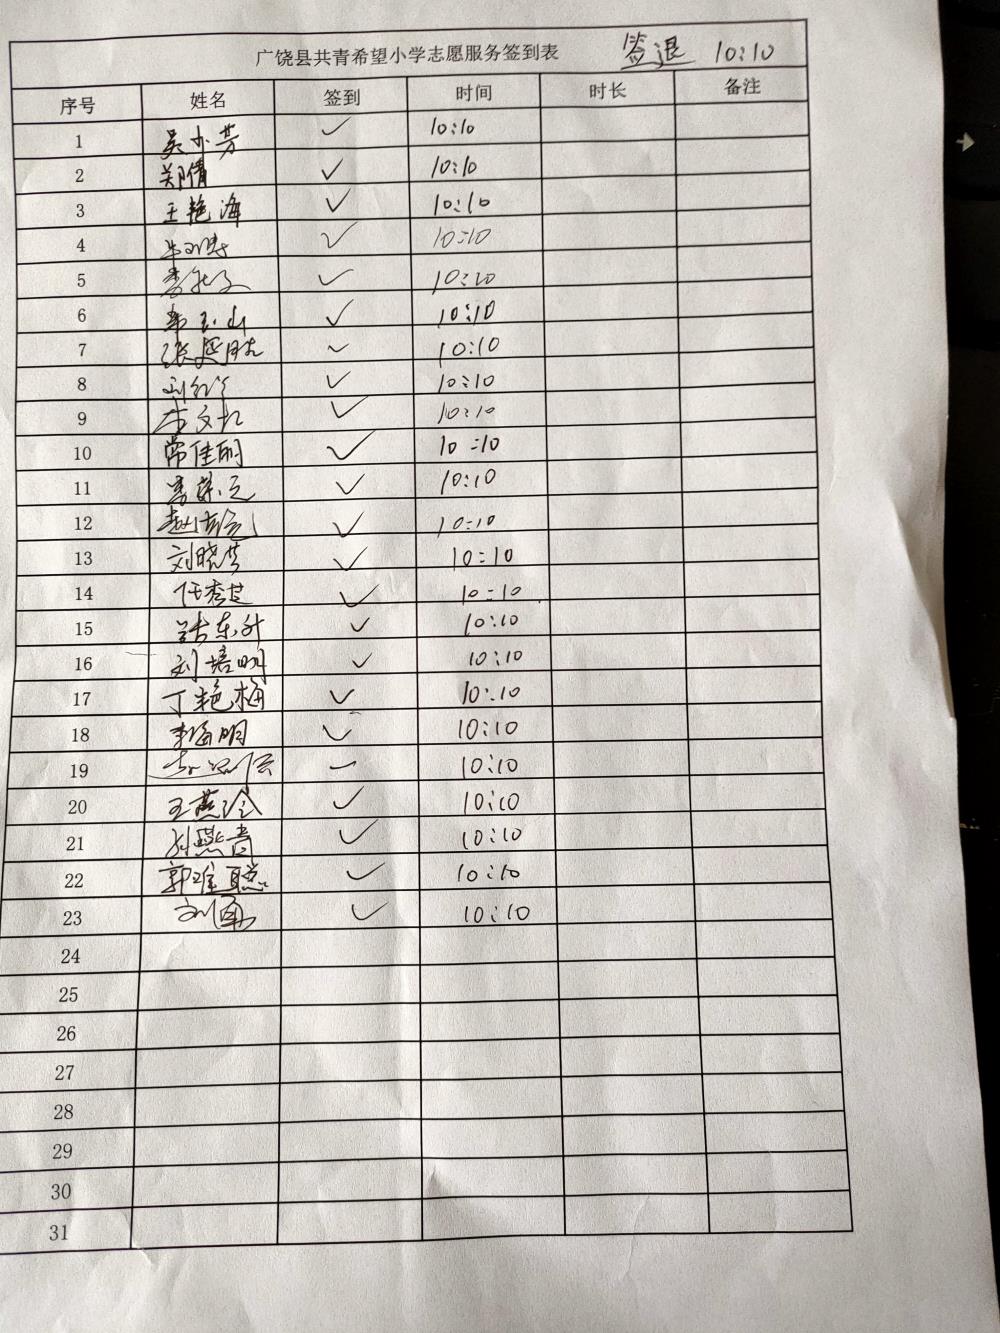 广饶县共青希望小学志愿服务签到表 签退 10:10
序号 姓名 签到 时间 时长 备注
1 吴小芳 ✓ 10:10
2 郑倩 ✓ 10:10
3 王艳海 ✓ 10:10
4 ✓ 10:10
5 ✓ 10:10
6 ✓ 10:10
7 张延胜 ✓ 10:10
8 ✓ 10:10
9 ✓ 10:10
10 常佳明 ✓ 10:10
11 ✓ 10:10
12 ✓ 10:10
13 刘晓芳 ✓ 10:10
14 任秀芝 ✓ 10:10
15 ✓ 10:10
16 刘培明 ✓ 10:10
17 丁艳梅 ✓ 10:10
18 李海明 ✓ 10:10
19 ✓ 10:10
20 王燕玲 ✓ 10:10
21 孙燕青 ✓ 10:10
22 ✓ 10:10
23 ✓ 10:10
24
25
26
27
28
29
30
31